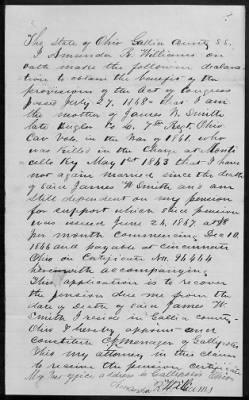 The State of Ohio Gallia County SS.
I Amanda R. Williams on
oath make the following declara-
tion to obtain the benefit of the
provisions of the Act of Congress
passed July 27, 1868 that I am
the mother of James W. Smith
late Bugler Co. L 7th Regt Ohio
Cav Vols in the War of 1861 who
was killed in the charge at Monti-
cello Ky May 1st 1863 that I have
not again married since the death
of said James W Smith and am
still dependent on my pension
for support which said pension
was issued June 24, 1867 at $8
per month Commencing Dec 10,
1866 and payable at Cincinnati
Ohio on Certificate No. 96464
herewith accompanying.
This application is to recover
the pension due me from the
date of Death of said James W.
Smith I reside in Gallia County
Ohio I hereby appoint and
Constitute
this my attorney in this claim
to receive the pension certificate
My Post office address is Gallipolis Ohio
Amanda R Williams